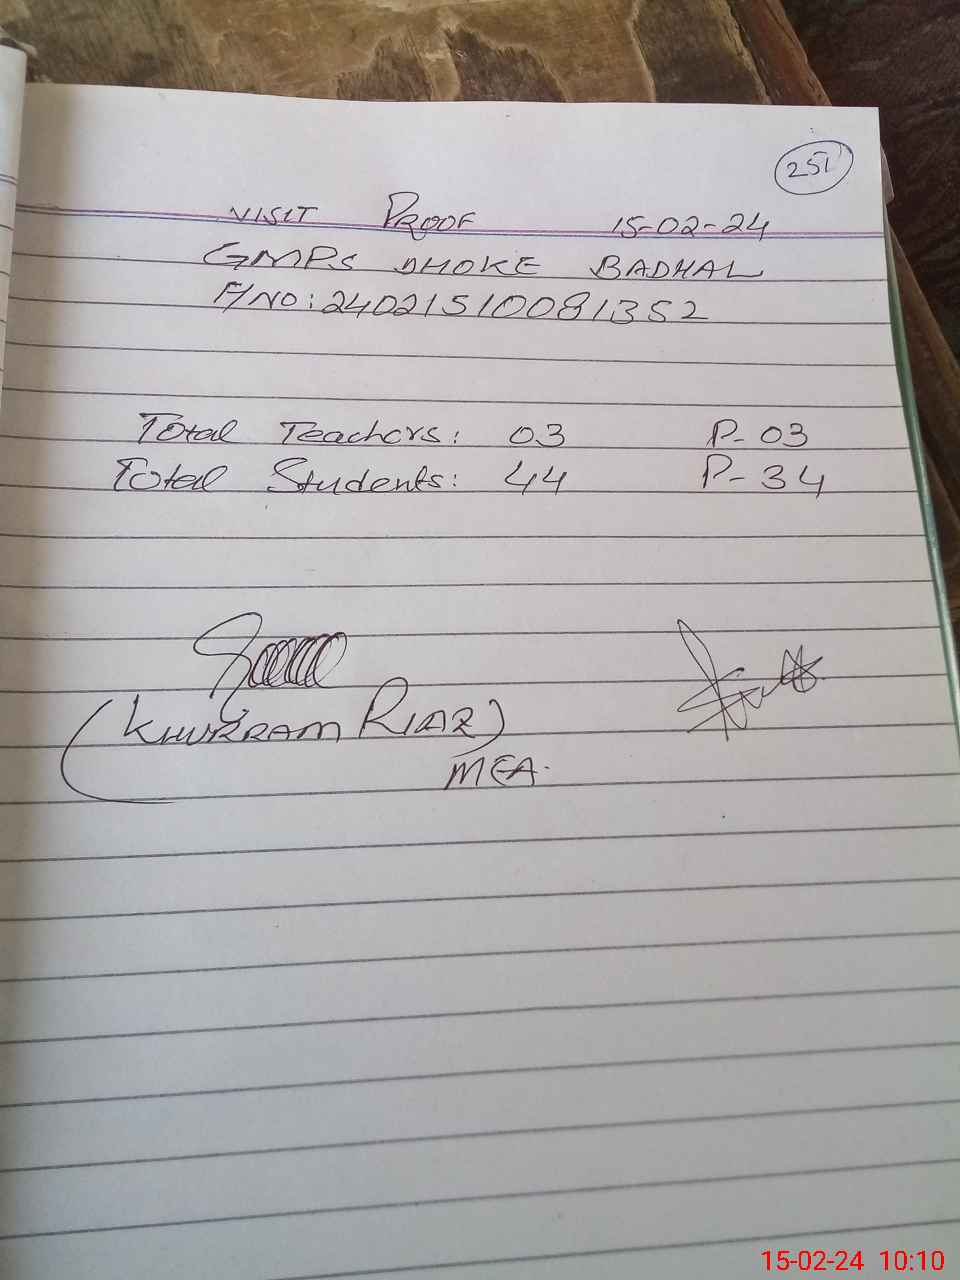 251
VISIT PROOF 15-02-24
GMPS DHOKE BADHAL
F/NO: 24021510081352
Total Teachers: 03 P-03
Total Students: 44 P-34
(KHURRAM RIAZ)
MEA.
15-02-24 10:10